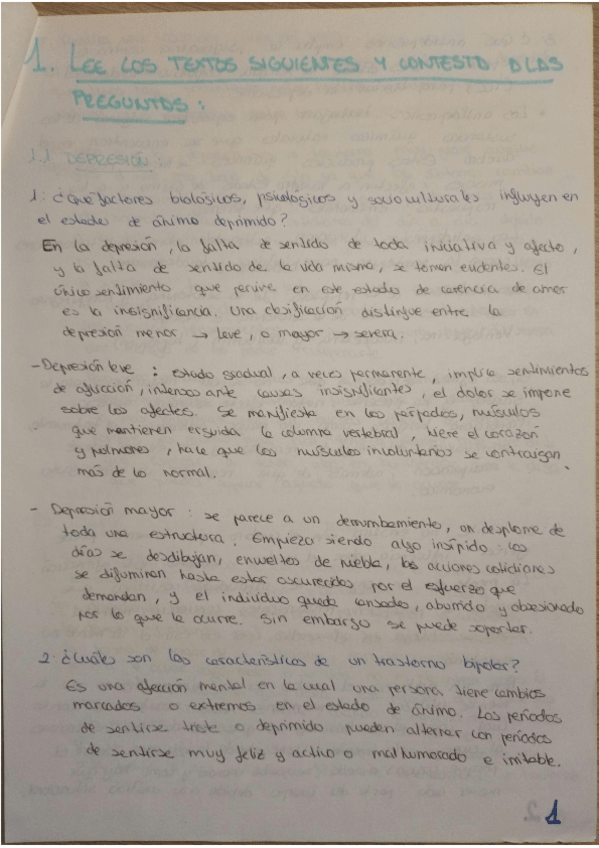 1. LEE LOS TEXTOS SIGUIENTES Y CONTESTA A LAS
PREGUNTAS:
1.1 DEPRESIÓN:
1. ¿Qué factores biológicos, psicológicos y socioculturales influyen en
el estado de ánimo deprimido?
En la depresión, la falta de sentido de toda iniciativa y afecto,
y la falta de sentido de la vida misma, se tornan evidentes. El
único sentimiento que pervive en este estado de carencia de amor
es la insignificancia. Una clasificación distingue entre la
depresión menor → leve, o mayor → severa.
- Depresión leve: estado gradual, a veces permanente, implica sentimientos
de aflicción, intensos ante causas insignificantes, el dolor se impone
sobre los afectos. Se manifiesta en los párpados, músculos
que mantienen erguida la columna vertebral, hiere el corazón
y pulmones, hace que los músculos involuntarios se contraigan
más de lo normal.
- Depresión mayor: se parece a un derrumbamiento, un desplome de
toda una estructura. Empieza siendo algo insípido: los
días se desdibujan, envueltos de niebla, las acciones cotidianas
se difuminan hasta estar oscurecidas por el esfuerzo que
demandan, y el individuo queda cansado, aburrido y obsesionado
por lo que le ocurre. Sin embargo se puede soportar.
2. ¿Cuáles son las características de un trastorno bipolar?
Es una afección mental en la cual una persona tiene cambios
marcados o extremos en el estado de ánimo. Los periodos
de sentirse triste o deprimido pueden alternar con periodos
de sentirse muy feliz y activo o malhumorado e irritable.
1